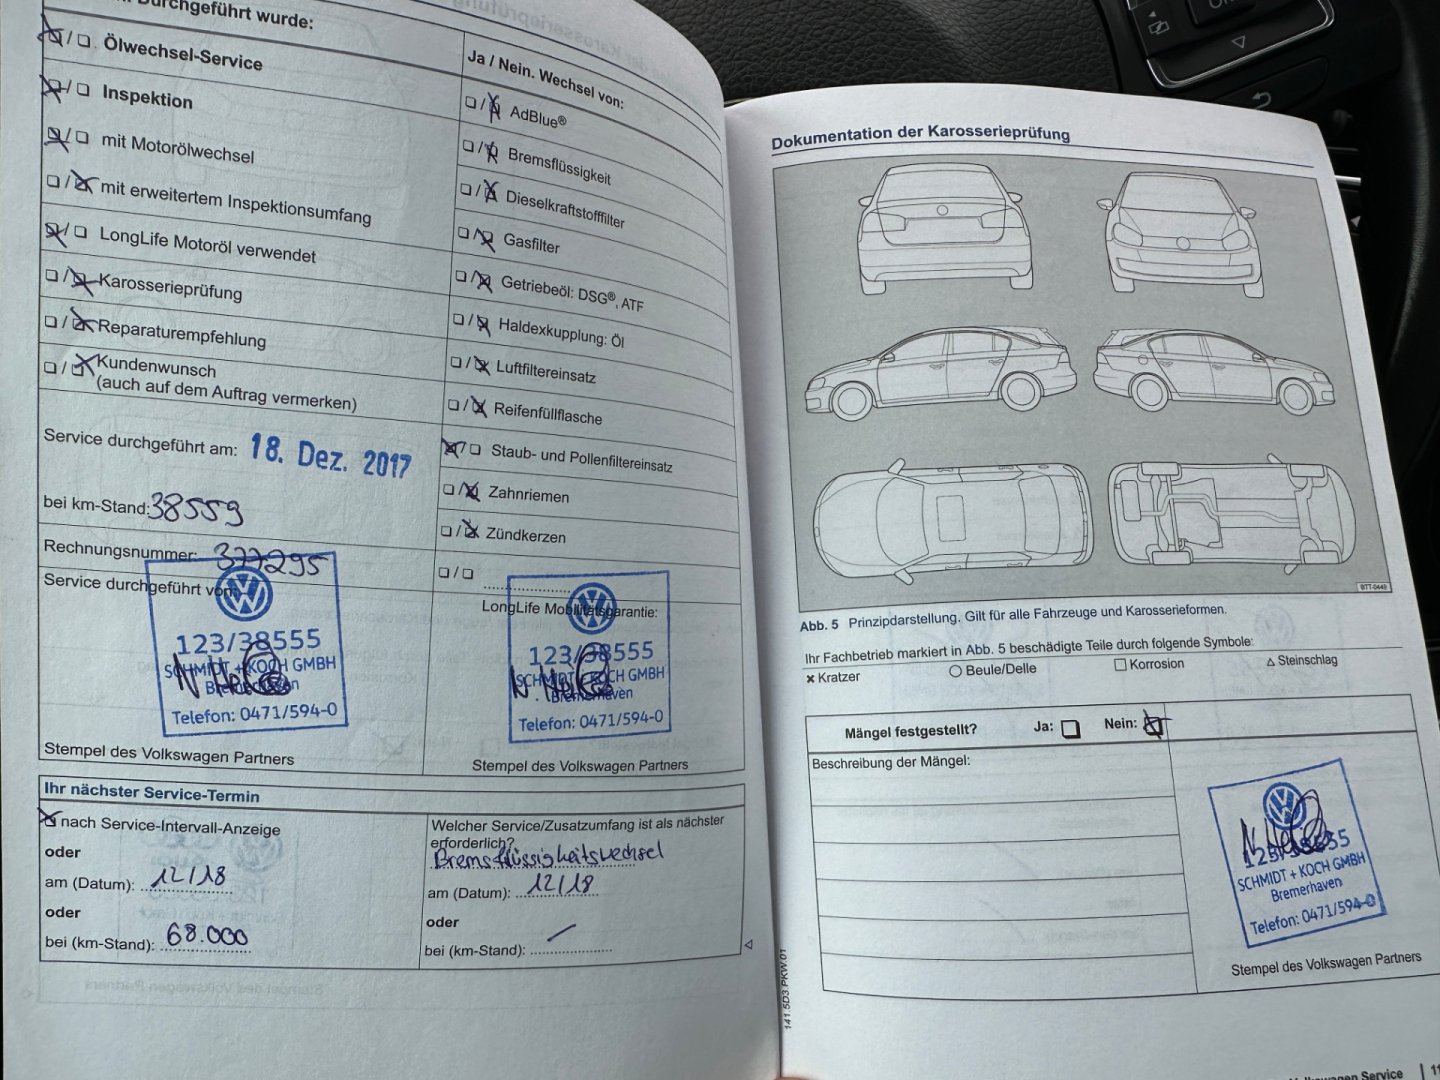 Durchgeführt wurde:
❏ / ❏ Ölwechsel-Service
❏ / ❏ Inspektion
❏ / ❏ mit Motorölwechsel
❏ / ❏ mit erweitertem Inspektionsumfang
❏ / ❏ LongLife Motoröl verwendet
❏ / ❏ Karosserieprüfung
❏ / ❏ Reparaturempfehlung
❏ / ❏ Kundenwunsch
(auch auf dem Auftrag vermerken)
Service durchgeführt am: 18. Dez. 2017
bei km-Stand: 38559
Rechnungsnummer: 377295
Service durchgeführt von:
123/38555
SCHMIDT + KOCH GMBH
Bremerhaven
Telefon: 0471/594-0
Stempel des Volkswagen Partners
Ja / Nein. Wechsel von:
❏ / ❏ AdBlue®
❏ / ❏ Bremsflüssigkeit
❏ / ❏ Dieselkraftstofffilter
❏ / ❏ Gasfilter
❏ / ❏ Getriebeöl: DSG®, ATF
❏ / ❏ Haldexkupplung: Öl
❏ / ❏ Luftfiltereinsatz
❏ / ❏ Reifenfüllflasche
❏ / ❏ Staub- und Pollenfiltereinsatz
❏ / ❏ Zahnriemen
❏ / ❏ Zündkerzen
❏ / ❏ ....................
LongLife Mobilitätsgarantie:
123/38555
SCHMIDT + KOCH GMBH
Bremerhaven
Telefon: 0471/594-0
Stempel des Volkswagen Partners
Ihr nächster Service-Termin
nach Service-Intervall-Anzeige
oder
am (Datum): 12/18
oder
bei (km-Stand): 68.000
Welcher Service/Zusatzumfang ist als nächster
erforderlich?
Bremsflüssigkeitswechsel
am (Datum): 12/18
oder
bei (km-Stand): /
Dokumentation der Karosserieprüfung
BTT-0449
Abb. 5 Prinzipdarstellung. Gilt für alle Fahrzeuge und Karosserieformen.
Ihr Fachbetrieb markiert in Abb. 5 beschädigte Teile durch folgende Symbole:
× Kratzer ○ Beule/Delle □ Korrosion △ Steinschlag
Mängel festgestellt? Ja: ❏ Nein: ❏
Beschreibung der Mängel:
SCHMIDT + KOCH GMBH
Bremerhaven
Telefon: 0471/594-0
Stempel des Volkswagen Partners
141.5D3.PKW.01
Service